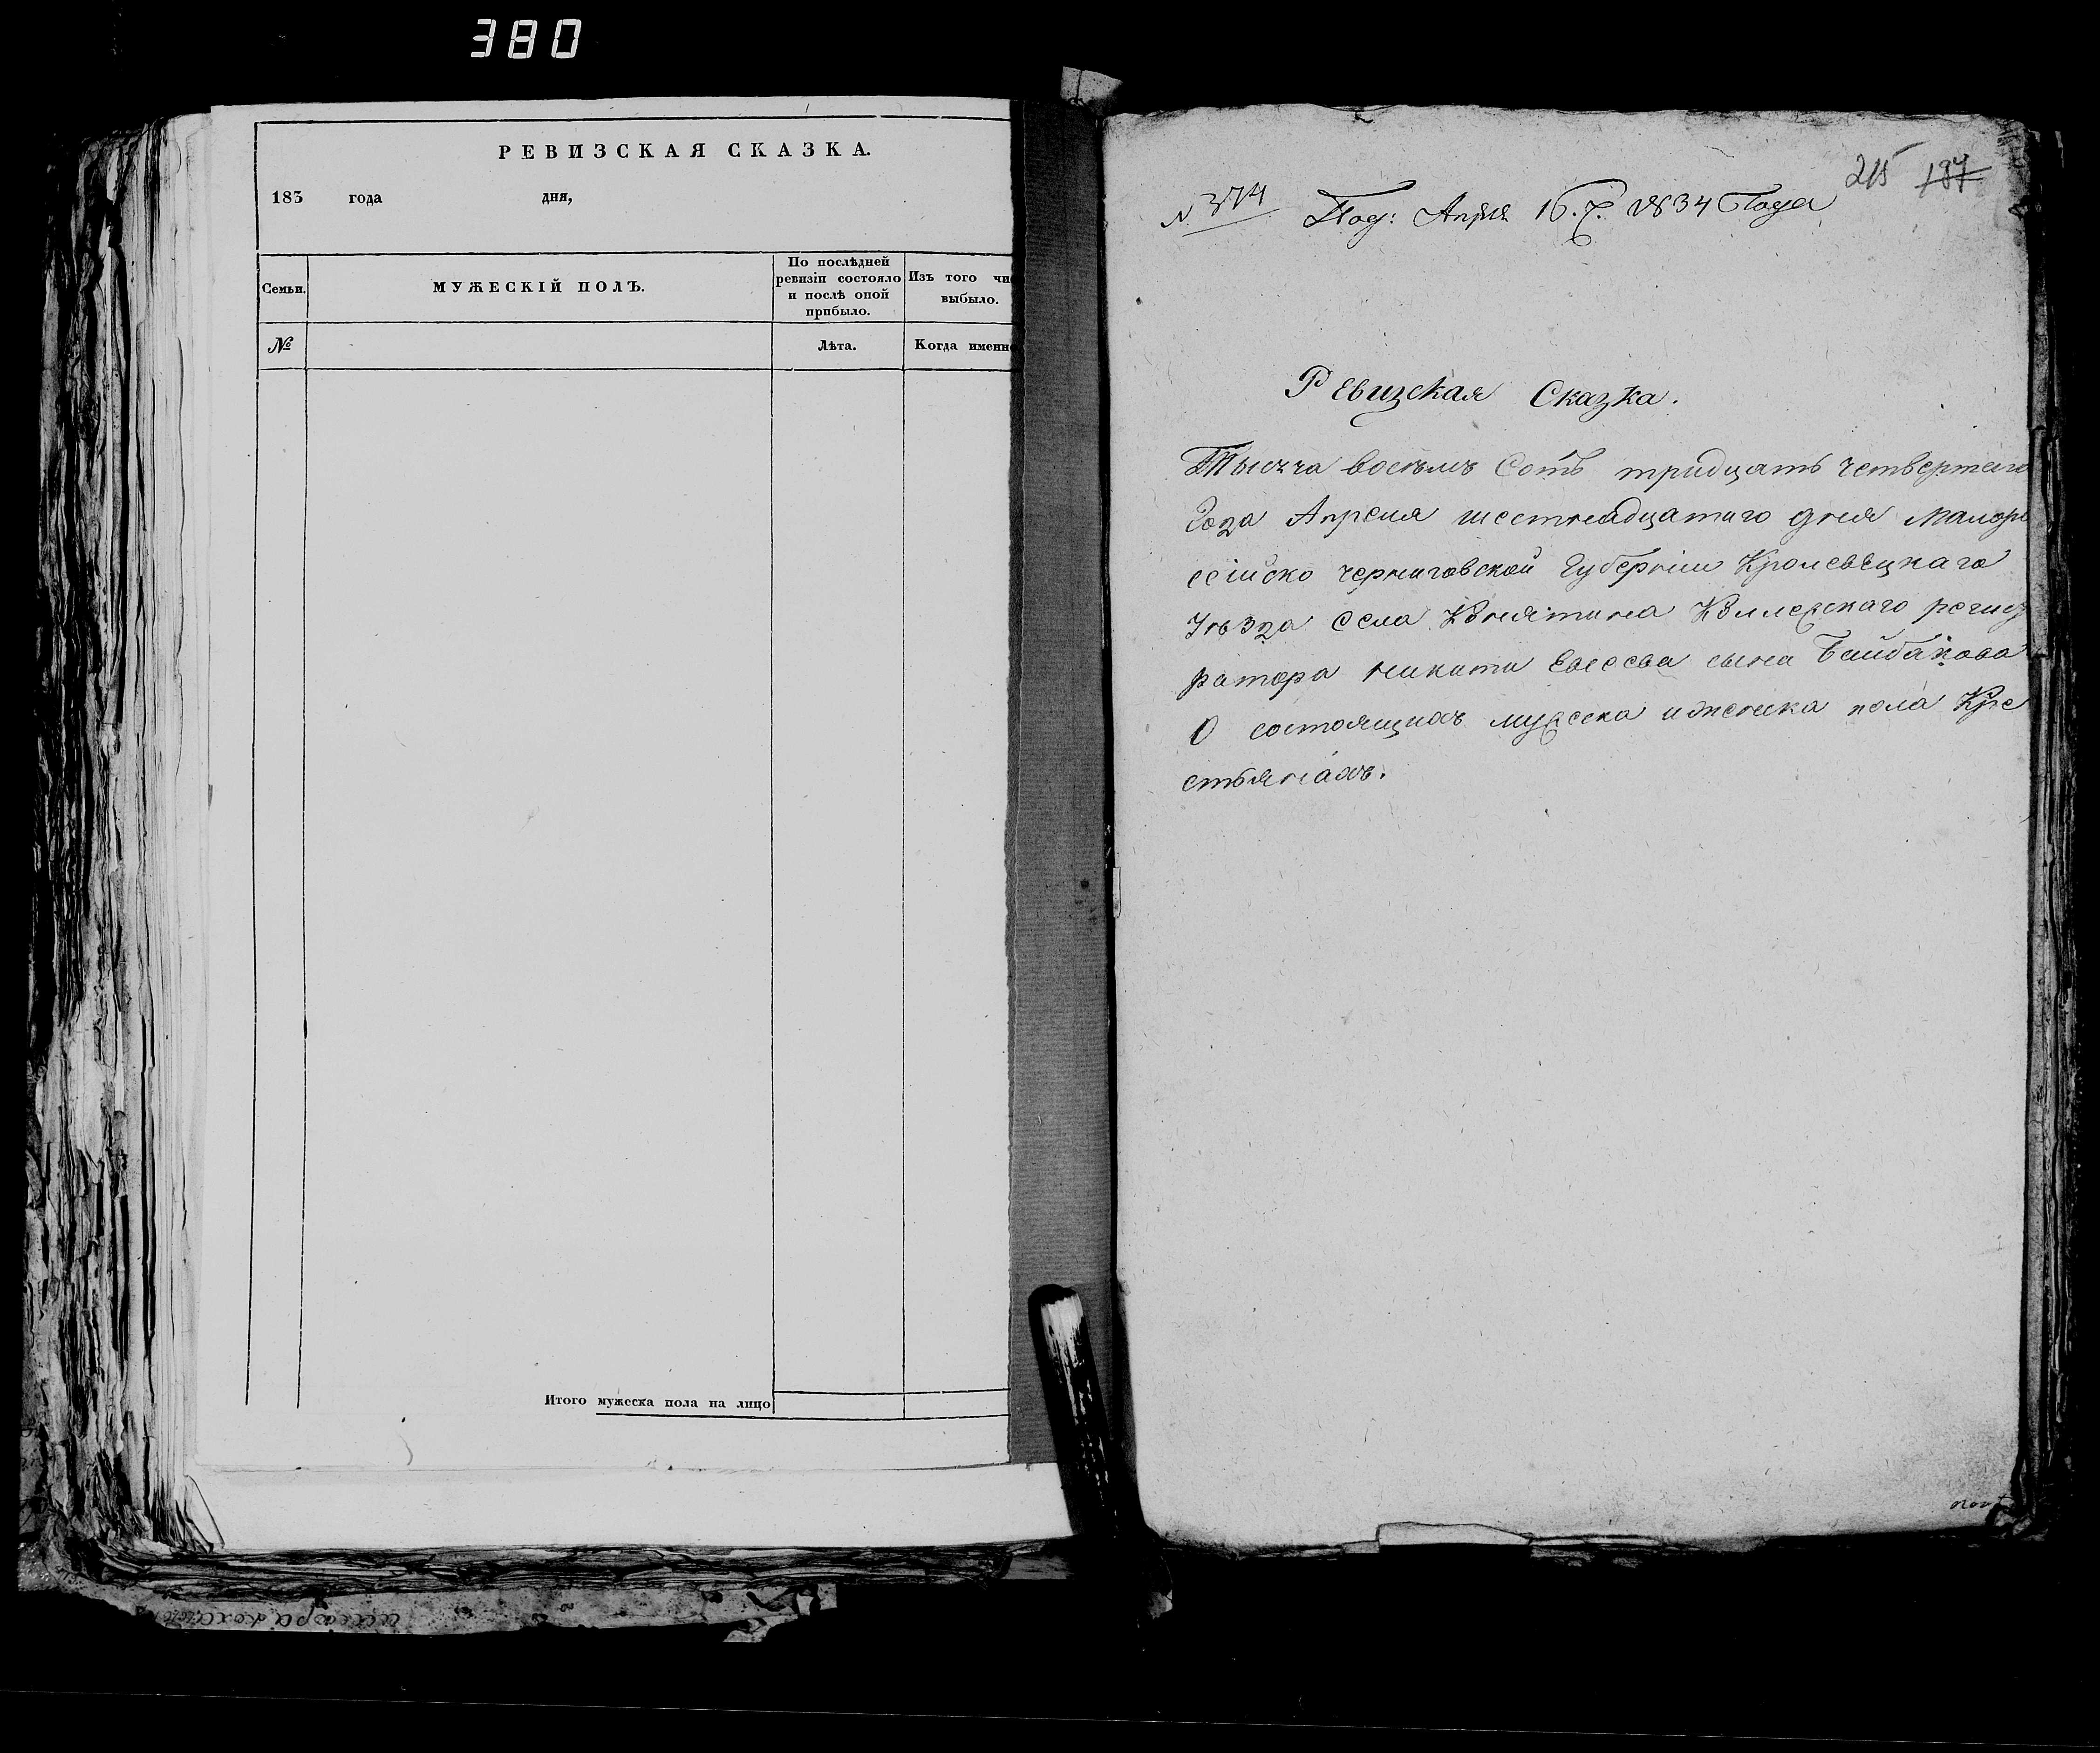 380
РЕВИЗСКАЯ СКАЗКА.
183 года дня,
Семьи.
МУЖЕСКІЙ ПОЛЪ.
По послѣдней
ревизіи состояло
и послѣ оной
прибыло.
Изъ того чи
выбыло.
№
Лѣта.
Когда именно
Итого мужеска пола на лицо
215 197
№ 374 Под: Апрѣля 16. 1834 Года
Ревизская Сказка.
Тысяча восѣмъ Сотъ тридцать четвертаго
Года Апреля шестнадцатаго дня Малоро
ссійско черниговской Губерніи Кролевецкаго
Уѣзда Села Княтина Коллежскаго регист
ратора никити сына Байбакова
О состоящихъ мужеска и женска пола Кре
стьянахъ.